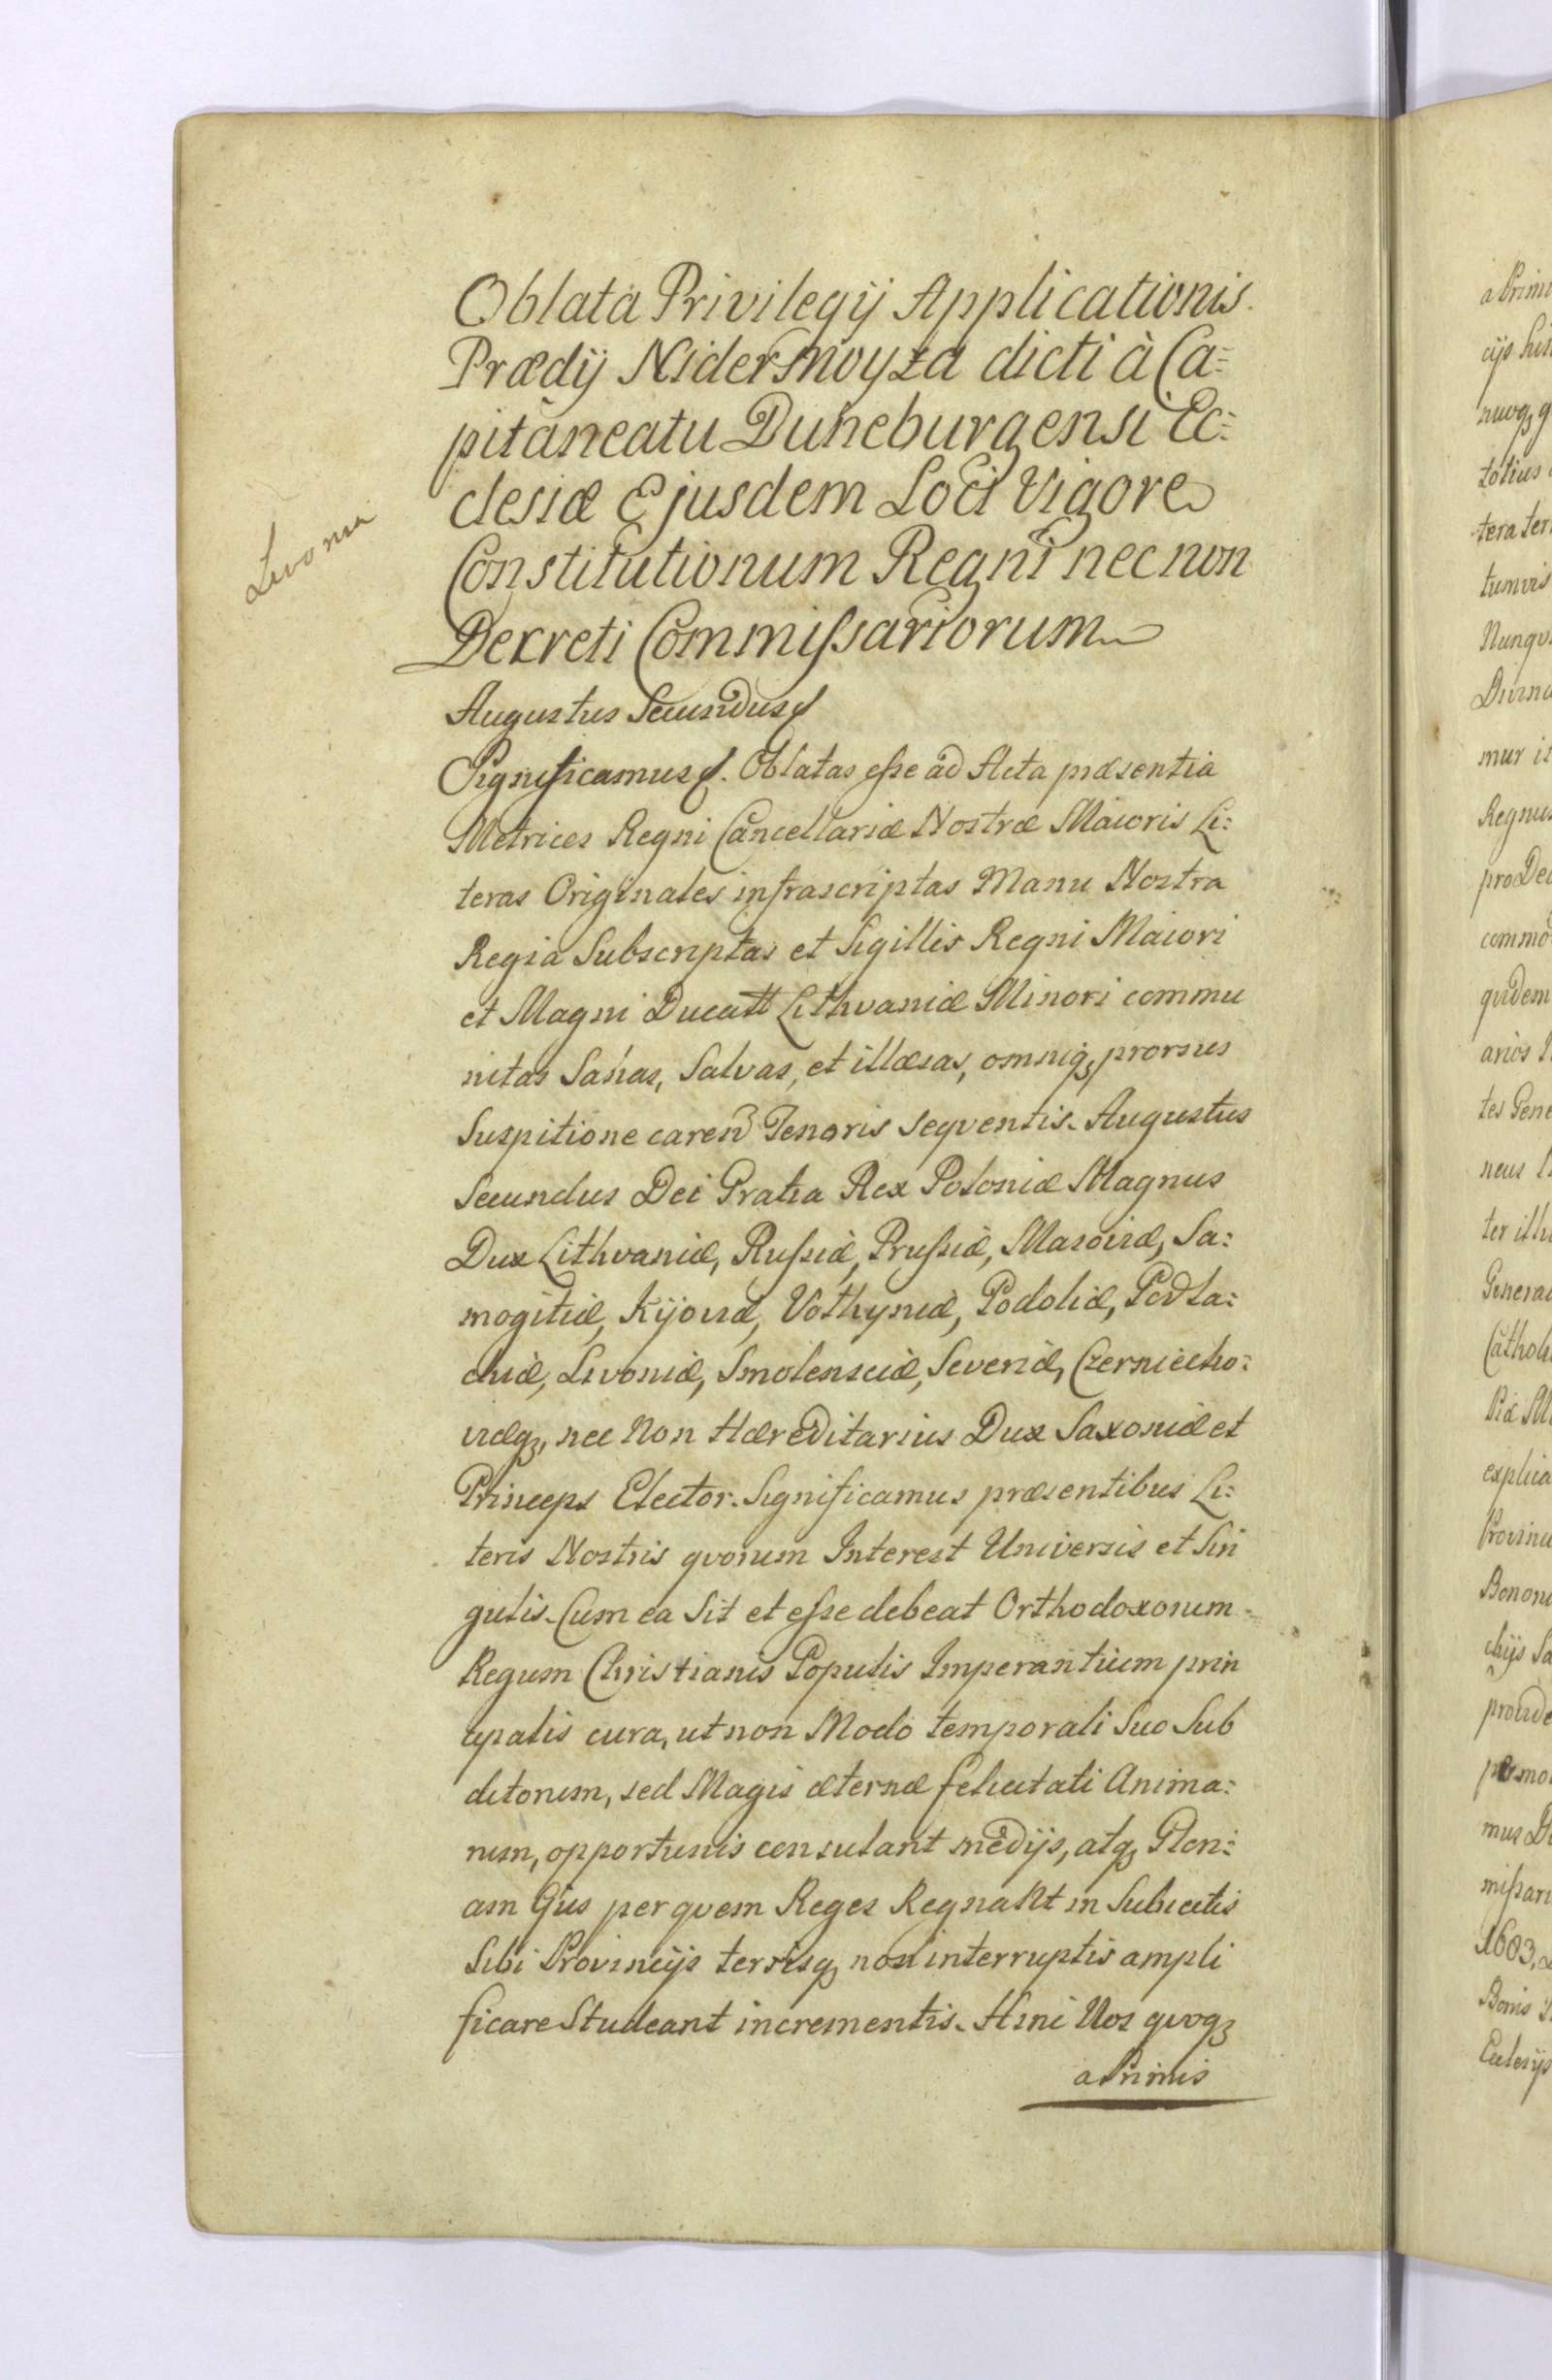 Livonia
Oblata Privilegij Applicationis
Prædij Nidermoyza dicti à Ca=
pitaneatu Duneburgensi Ec=
clesiæ Ejusdem Loci Vigore
Constitutionum Regni nec non
Decreti Commissariorum
Augustus Secundus
Significamus. Oblatas esse ad Acta præsentia
Metrices Regni Cancellariæ Nostræ Maioris Li=
teras Originales infrascriptas Manu Nostra
Regia Subscriptas et Sigillis Regni Maiori
et Magni Ducatt Lithvaniæ Minori commu
nitas Sanas, Salvas, et illæsas, omniq₃ prorsus
Suspitione caren̄ Tenoris seqventis. Augustus
Secundus Dei Gratia Rex Poloniæ Magnus
Dux Lithvaniæ, Russiæ, Prussiæ, Masoviæ, Sa=
mogitiæ, Kijoviæ, Volhyniæ, Podoliæ, Podla=
chiæ, Livoniæ, Smolensciæ, Severiæ, Czerniecho=
viæq₃, nec Non Hæreditarius Dux Saxoniæ et
Princeps Elector. Significamus præsentibus Li=
teris Nostris qvorum Interest Universis et Sin
gulis. Cum ea Sit et esse debeat Orthodoxorum
Regum Christianis Populis Imperantium prin
cipalis cura, ut non Modo temporali Suo Sub
ditorum, sed Magis æternæ felicitati Anima=
rum, opportunis consulant medijs, atq₃ Glori=
am Ejus per qvem Reges Regnant in Subiectis
Sibi Provincijs terrisq₃ non interruptis ampli
ficare Studeant incrementis. Hinc Nos qvoq₃
a Primis